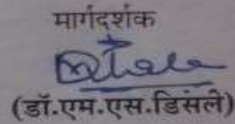 मार्गदर्शक
(डॉ.एम.एस.डिसले)